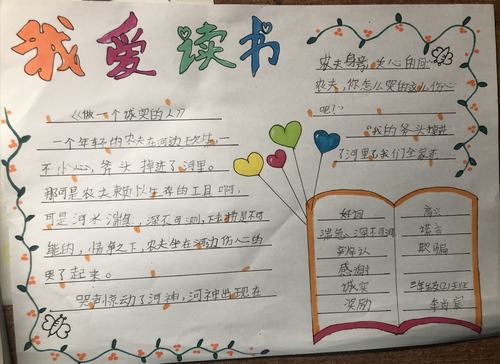 我爱读书
《做一个诚实的人》
一个年轻的农夫在河边砍柴,一
不小心,斧头掉进了河里。
那可是农夫赖以生存的工具啊,
可是河水湍急,深不可测,去捞是不可
能的,情急之下,农夫坐在河边伤心的
哭了起来。
哭声惊动了河神,河神出现在
农夫身旁,关心的问:
农夫,你怎么哭的这么伤心
呢?
"我的斧头掉进
了河里了我们全家还
好词
湍急、深不可测
承认
感谢
诚实
奖励
高兴
谎言
欺骗